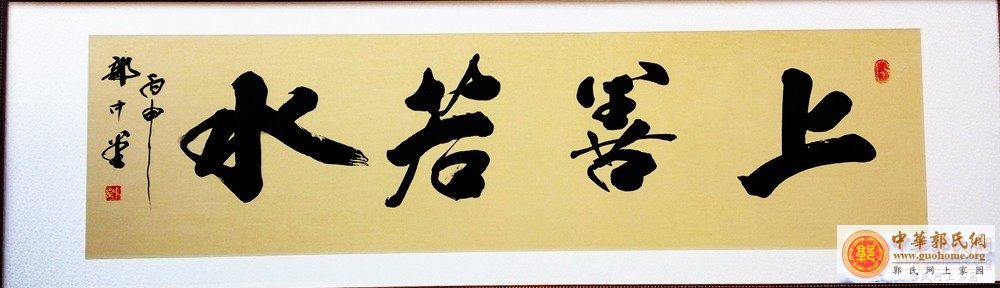 上善若水
丙申
郭中堂
中華郭氏網
www.guohome.org
郭氏网上家园